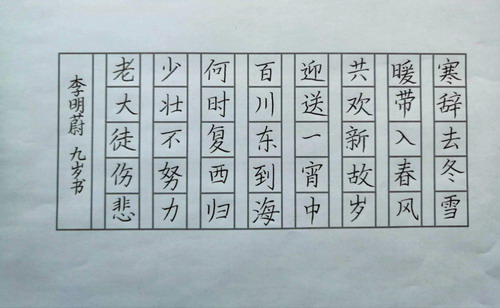 寒辞去冬雪
暖带入春风
共欢新故岁
迎送一宵中
百川东到海
何时复西归
少壮不努力
老大徒伤悲
李明蔚 九岁书